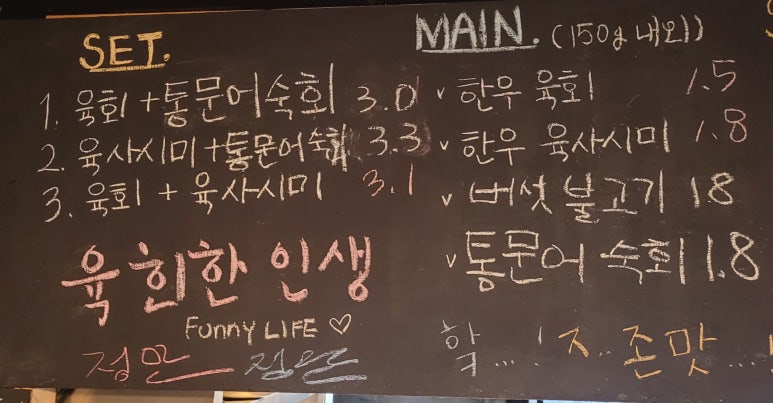 SET.
1. 육회 + 통문어숙회 3.0
2. 육사시미 + 통문어숙회 3.3
3. 육회 + 육사시미 3.1
육회한 인생
FUNNY LIFE ♡
MAIN. (150g 내외)
v 한우 육회 1.5
v 한우 육사시미 1.8
v 버섯 불고기 18
v 통문어 숙회 1.8
학...! ㅈ..존맛....!